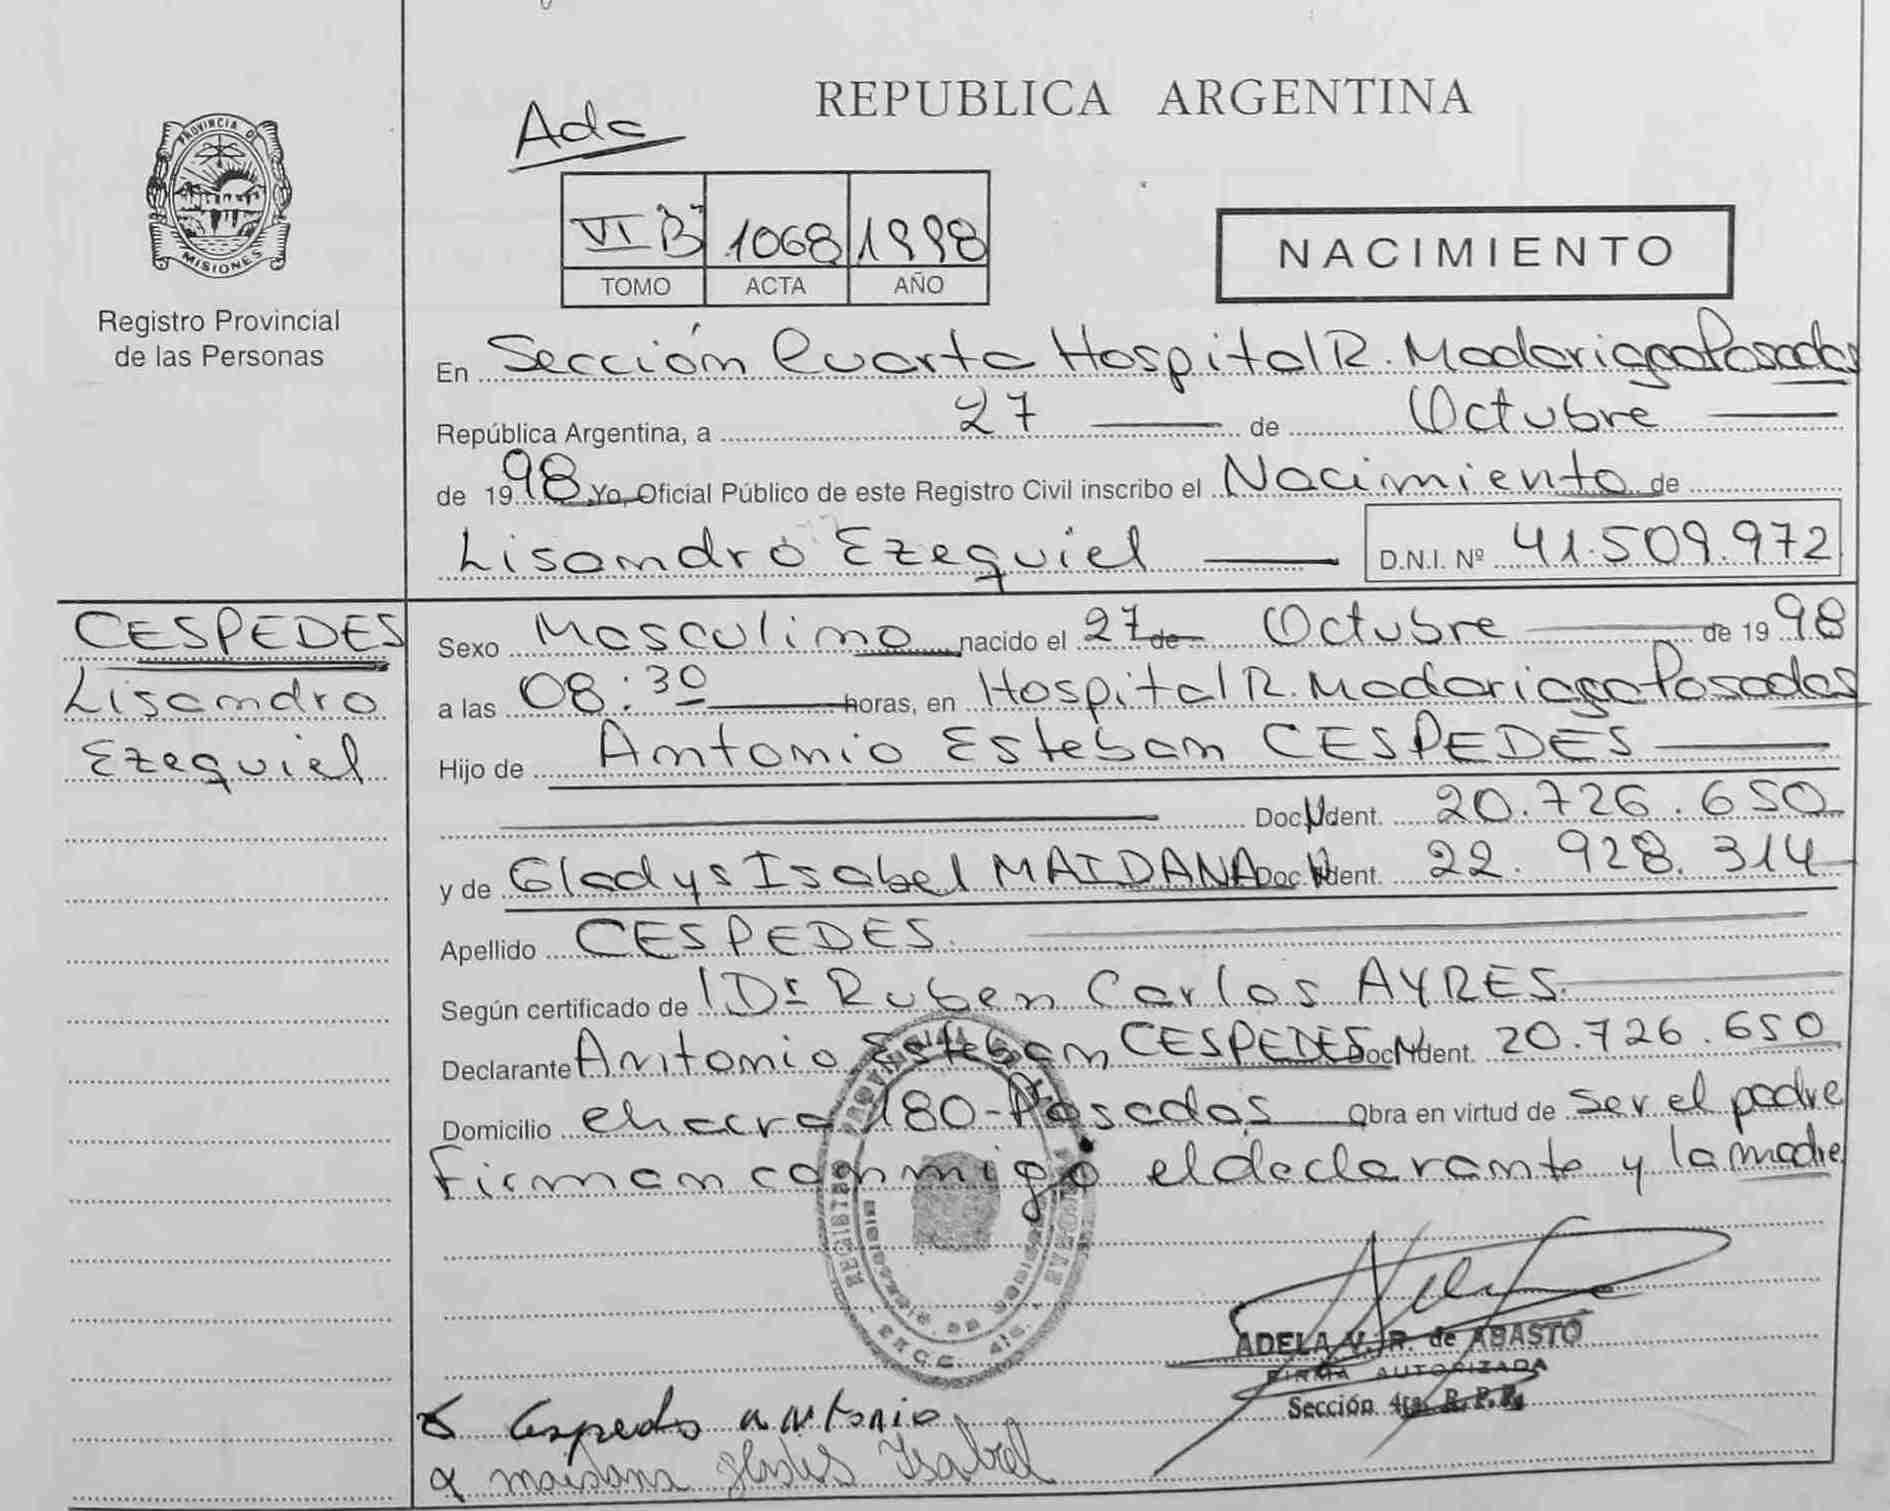 REPUBLICA ARGENTINA
Ada
PROVINCIA DE
MISIONES
Registro Provincial
de las Personas
VI "B" 1068 1998
TOMO ACTA AÑO
NACIMIENTO
En Sección Cuarta Hospital R. Madariaga Posadas
República Argentina, a 27 de Octubre
de 1998 Yo, Oficial Público de este Registro Civil inscribo el Nacimiento de
Lisandro Ezequiel D.N.I. Nº 41.509.972
CESPEDES
Lisandro
Ezequiel
Sexo Masculino nacido el 27 de Octubre de 1998
a las 08:30 horas, en Hospital R. Madariaga Posadas
Hijo de Antonio Esteban CESPEDES
Doc. Ident. 20.726.650
y de Gladys Isabel MAIDANA Doc. Ident. 22.928.314
Apellido CESPEDES.
Según certificado de Dr Ruben Carlos AYRES.
Declarante Antonio Esteban CESPEDES Doc. Ident. 20.726.650
Domicilio chacra 180-Posadas Obra en virtud de ser el padre
Firman conmigo el declarante y la madre
ADELA V. R. de ABASTO
FIRMA AUTORIZADA
Sección 4ta. R. P. P.
Cespedes antonio
maidana glades Isabel